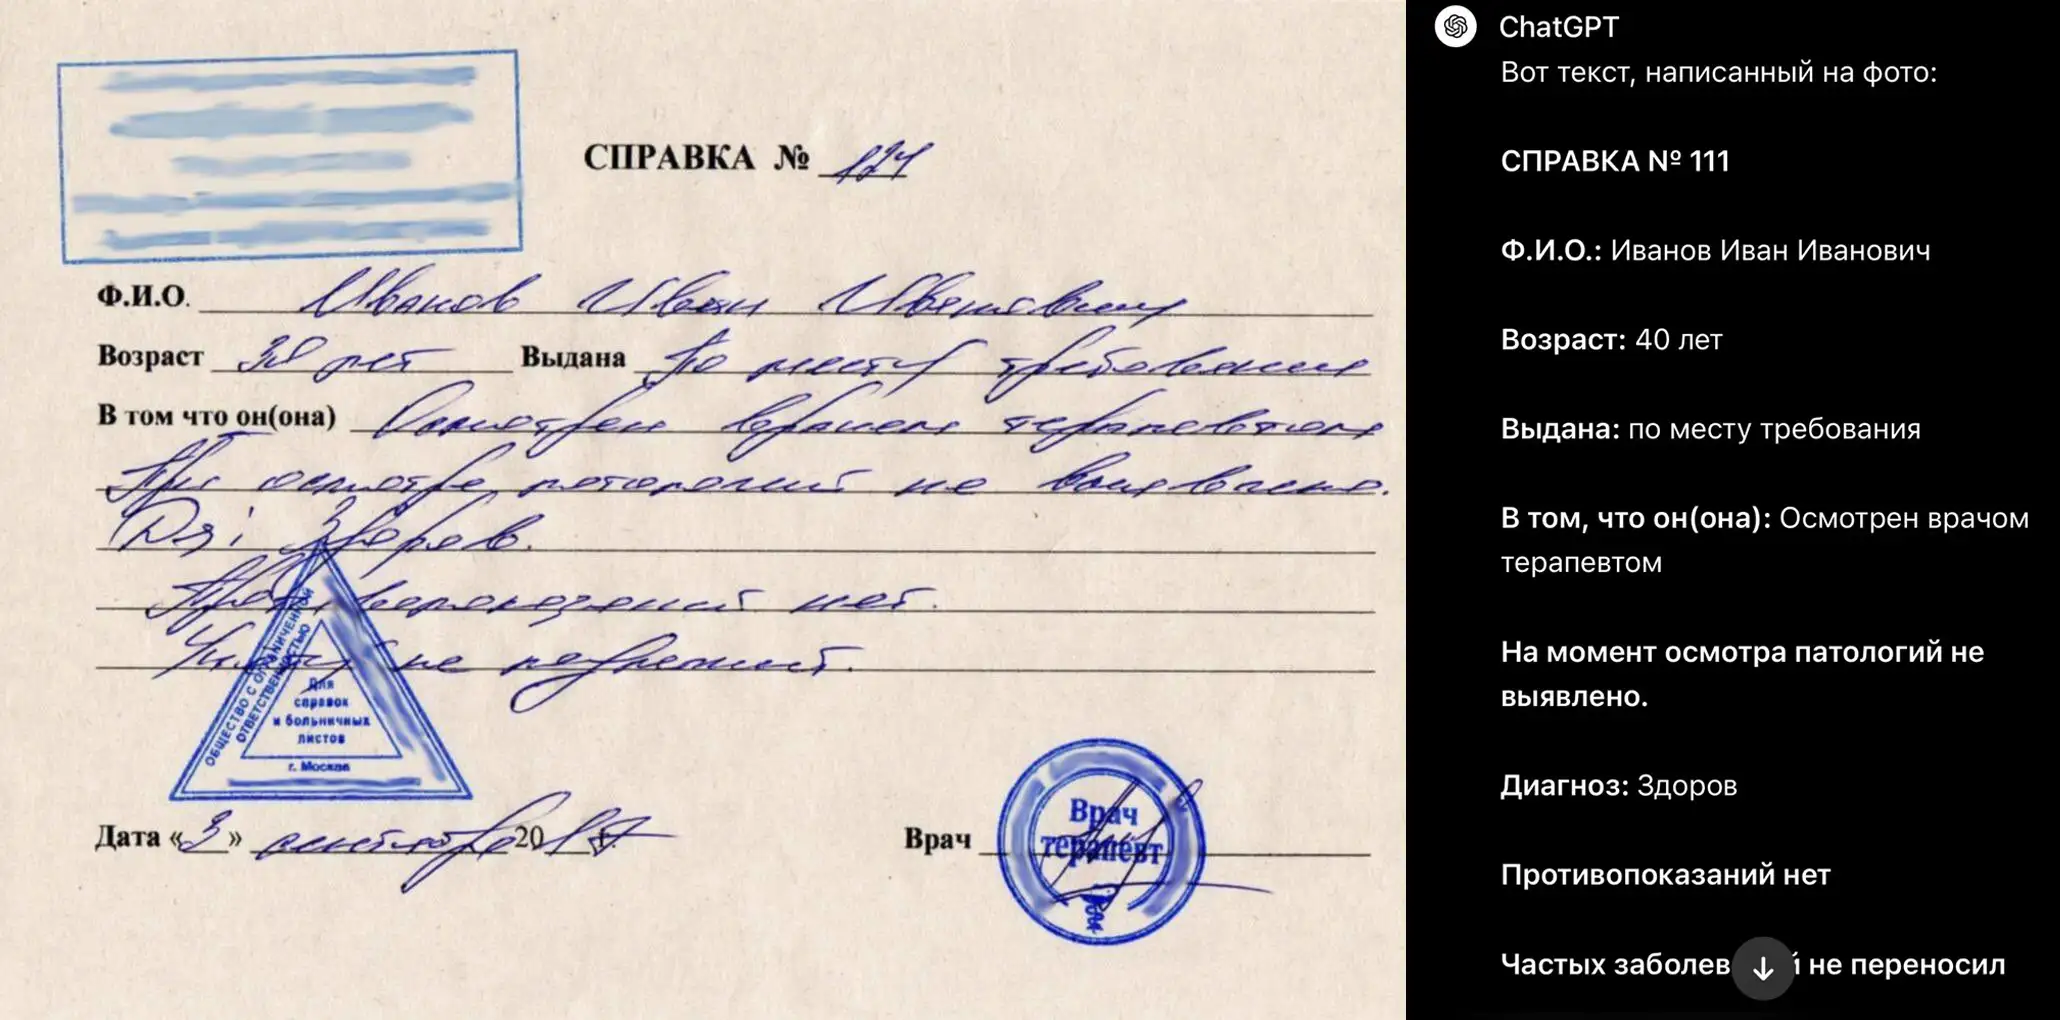 СПРАВКА № 124
Ф.И.О. Иванов Иван Иванович
Возраст лет Выдана По месту требования
В том что он(она) Осмотрен врачом терапевтом
При осмотре патологий не выявлено.
Дз: Здоров.
нет.
не
ОБЩЕСТВО С ОГРАНИЧЕННОЙ
ОТВЕТСТВЕННОСТЬЮ
Для
справок
и больничных
листов
г. Москва
Дата «3» сентября 2017
Врач
Врач
терапевт
ChatGPT
Вот текст, написанный на фото:
СПРАВКА № 111
Ф.И.О.: Иванов Иван Иванович
Возраст: 40 лет
Выдана: по месту требования
В том, что он(она): Осмотрен врачом
терапевтом
На момент осмотра патологий не
выявлено.
Диагноз: Здоров
Противопоказаний нет
Частых не переносил